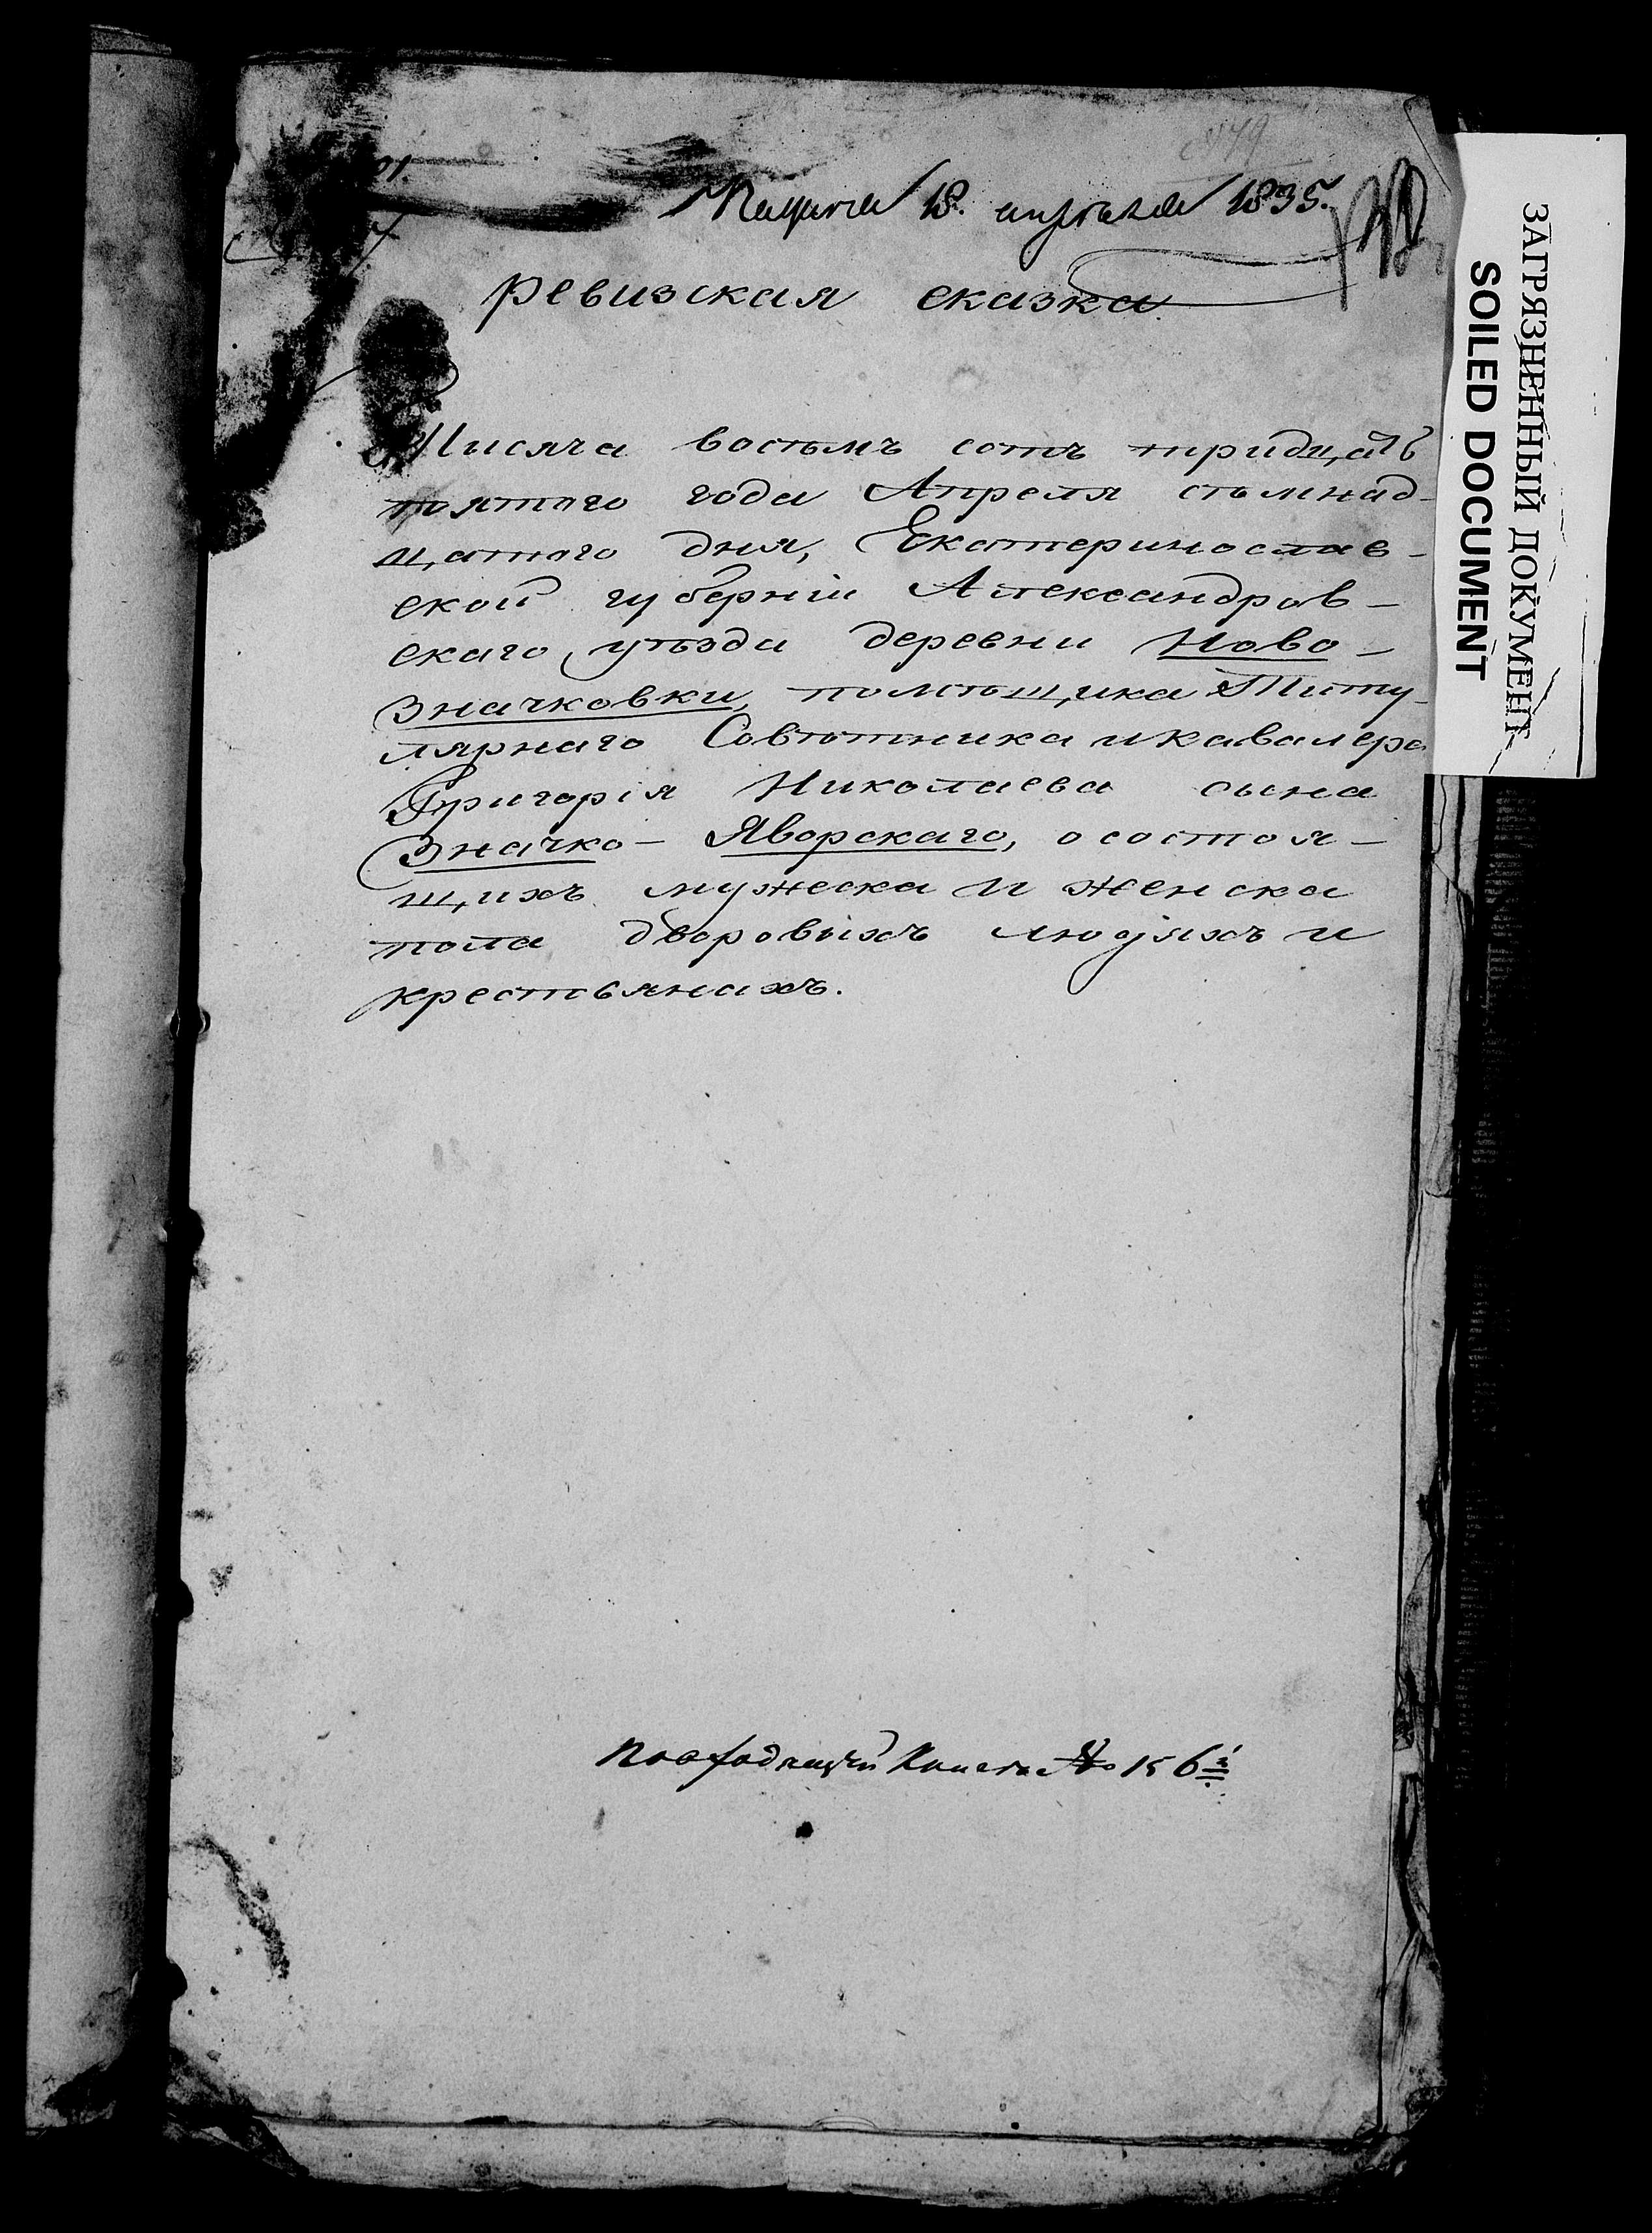 № 79
Подана 18. апреля 1835.
Ревизская сказка
Тысяча восѣмъ сотъ тридцать
пятого года Апреля сѣмнад-
цатого дня, Екатеринослав-
ской губерніи Александров-
скаго уѣзда деревни Ново-
значковки, помѣщика Титу-
лярнаго Совѣтника и кавалера
Григорія Николаева сына
Значко-Яворскаго, о состоя-
щихъ мужеска и женска
пола дворовыхъ людяхъ и
крестьянахъ.
По входящей Книге № 156й
ЗАГРЯЗНЕННЫЙ ДОКУМЕНТ
SOILED DOCUMENT